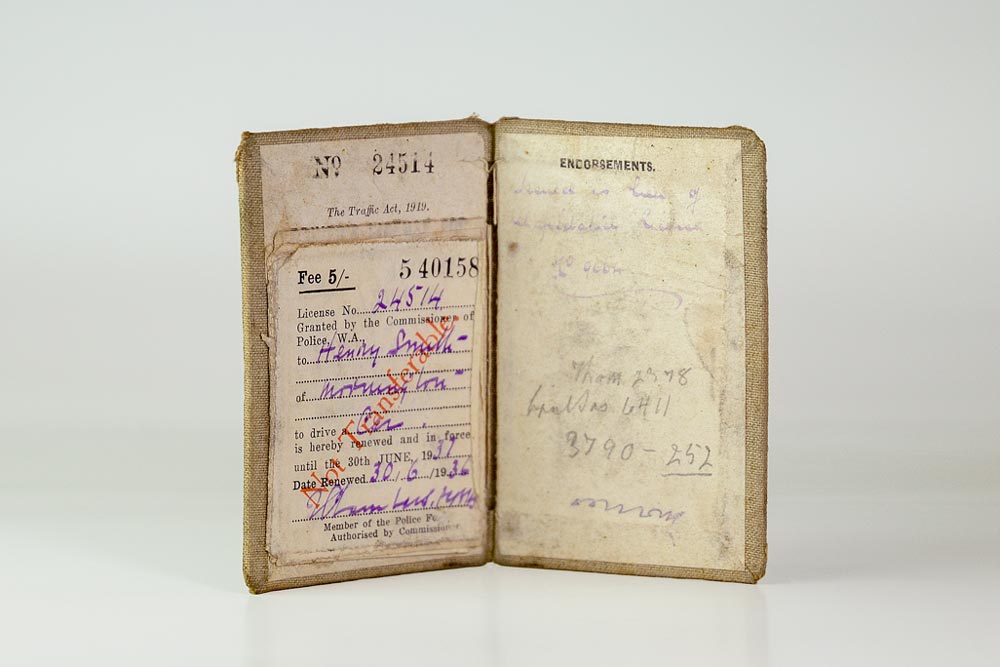 Nº 24514
The Traffic Act, 1919.
Fee 5/-
540158
License No. 24514
Granted by the Commissioner of
Police, W.A.,
to Henry Smith
of Mornington
to drive a Car
is hereby renewed and in force
until the 30th JUNE, 1937
Date Renewed 30/6/1936
Member of the Police
Authorised by Commissioner
Not Transferable.
ENDORSEMENTS.
Issued in lieu of
License
Thom 2378
6411
3790-252